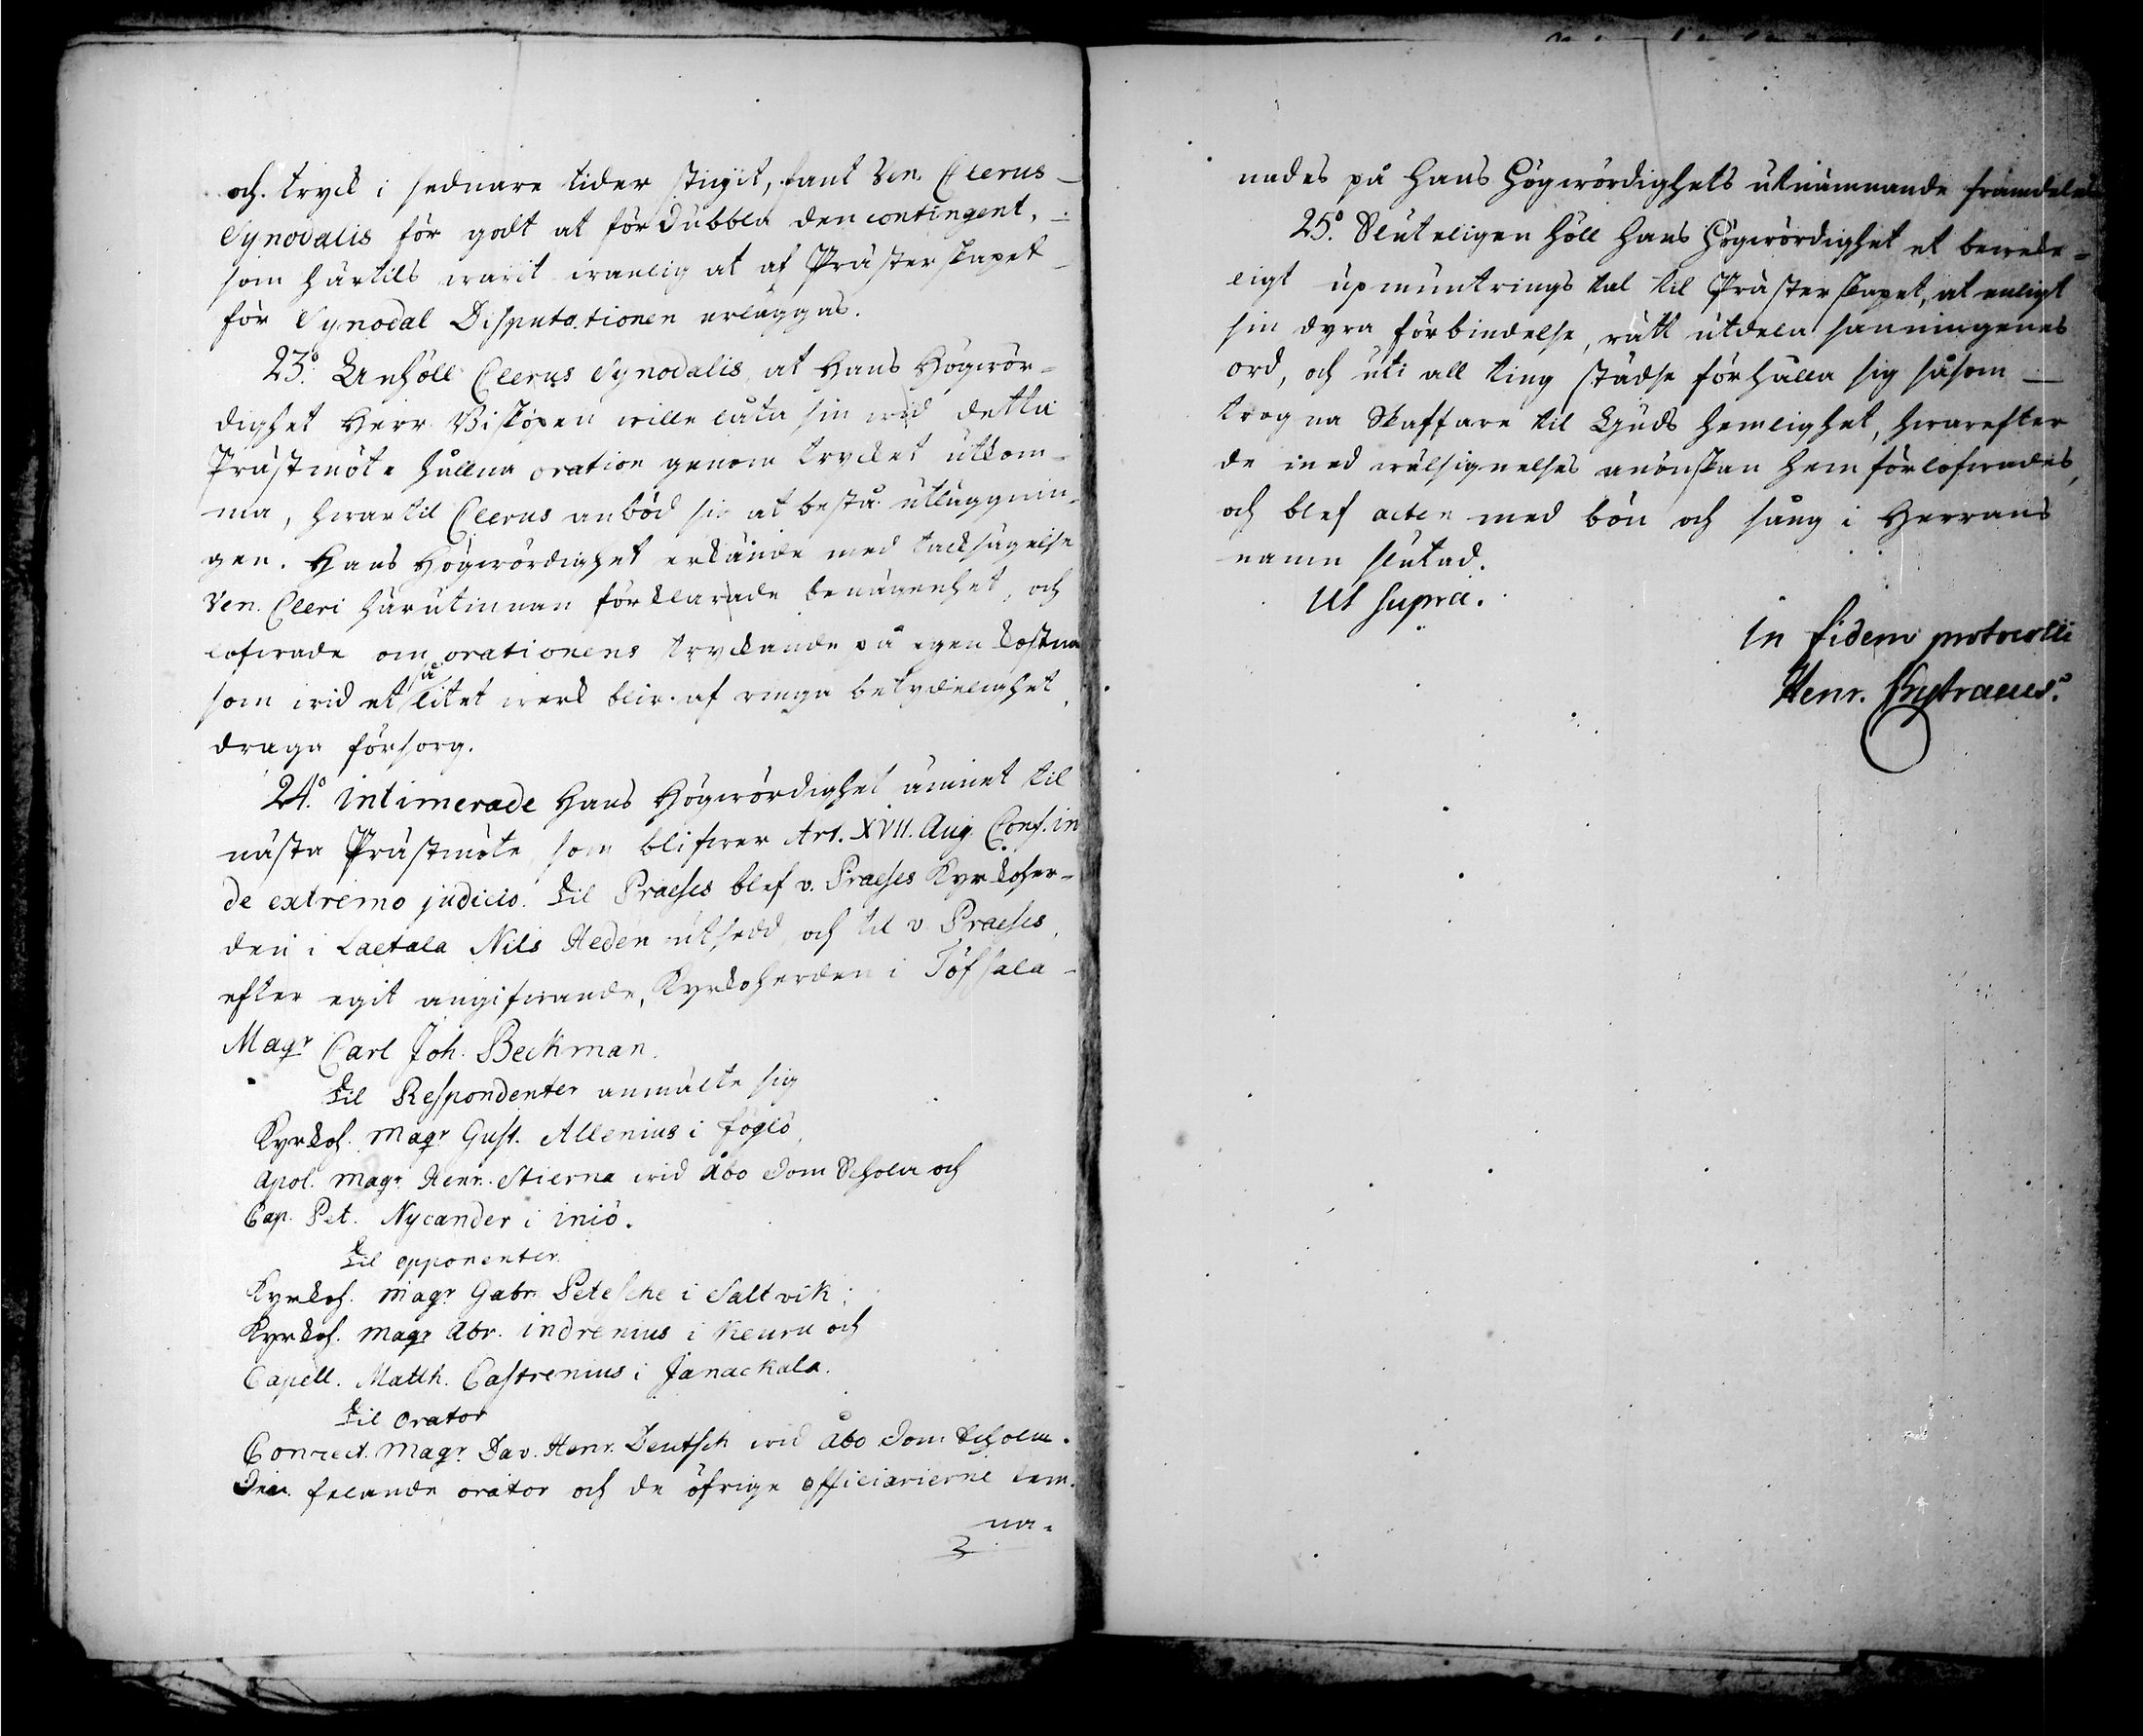 och tryck i sednare tider stigit, fant Ven. Clerus
Synodalis för godt at fördubbla den contingent,
som härtils warit wanlig at af Prästerskapet
för Synodal Disputationen erläggas.
23:o Anhöll Clerus Synodalis, at Hans Högwör-
dighet Herr Biskopen wille låta sin wid detta
Prästmöte hållna oration genom trycket utkom-
ma, hwartil Clerus anbød sig at bestå utläggnin-
gen. Hans Högwördighet erkände med tacksägelse
Ven. Cleri härutinnan förklarade benägenhet, och
lofwade om orationens tryckande på egen kostnad
som wid et så litet werk blir af ringa betydelighet,
draga försorg.
24:o intimerade Hans Högwördighet ämnet til
nästa Prästmöte, som blifwer Art. XVII. Aug. Conf. in
de extremo judicio. Til Praeses blef v. Praeses Kyrkoher-
den i Laetala Nils Heden utsedd, och til v. Praeses,
efter egit angifwande, Kyrkoherden i Töfsala
Magr Carl Joh. Beckman.
Til Respondenter anmälte sig
Kyrkoh. Magr Gust. Allenius i Föglö,
Apol. Magr. Henr. Stierna wid Åbo Dom Schola och
Cap. Pet. Nycander i Iniö.
Til opponenter.
Kyrkoh. Magr Gabr. Petesche i Saltvik;
Kyrkoh. Magr Abr. Indrenius i Keuru och
Capell. Matth. Castrenius i Janackala.
Til Orator
Conrect. Magr. Dav. Henr. Deutsch wid Åbo Dom Schola.
Den felande orator och de öfrige officiarierne lem-
na-
nades på Hans Högwördighets utnämnande framdeles
25:o Sluteligen höll Hans Högwördighet et bewek-
ligt upmuntrings tal til Prästerskapet, at enligt
sin dyra förbindelse, rätt utdela sanningenes
ord, och uti all ting städse förhålla sig såsom
trogna Skaffare til Guds hemlighet, hwarefter
de med wälsignelses anönskan hemförlofwades,
och blef acten med bön och sång i Herrans
namn slutad.
Ut supra.
In fidem protocolli
Henr.